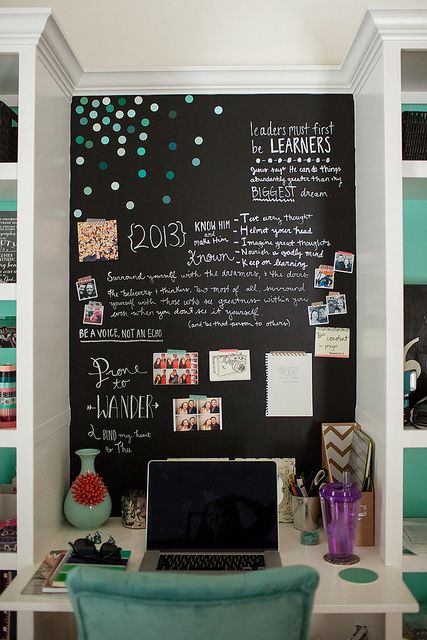 leaders must first
be LEARNERS
Jesus says He can do things
abundantly greater than my
BIGGEST dream.
{2013}
KNOW HIM
and
make Him
Known
- Test every thought
- Helmet your head
- Imagine great thoughts
- Nourish a godly mind
- Keep on learning
Surround yourself with the dreamers, & the doers,
the believers & thinkers, but most of all, surround
yourself with those who see greatness within you
even when you don't see it yourself.
(and be that person to others)
BE A VOICE, NOT AN ECHO
Be
constant
in
prayer
Prone
to
WANDER
& BIND my heart
to Thee